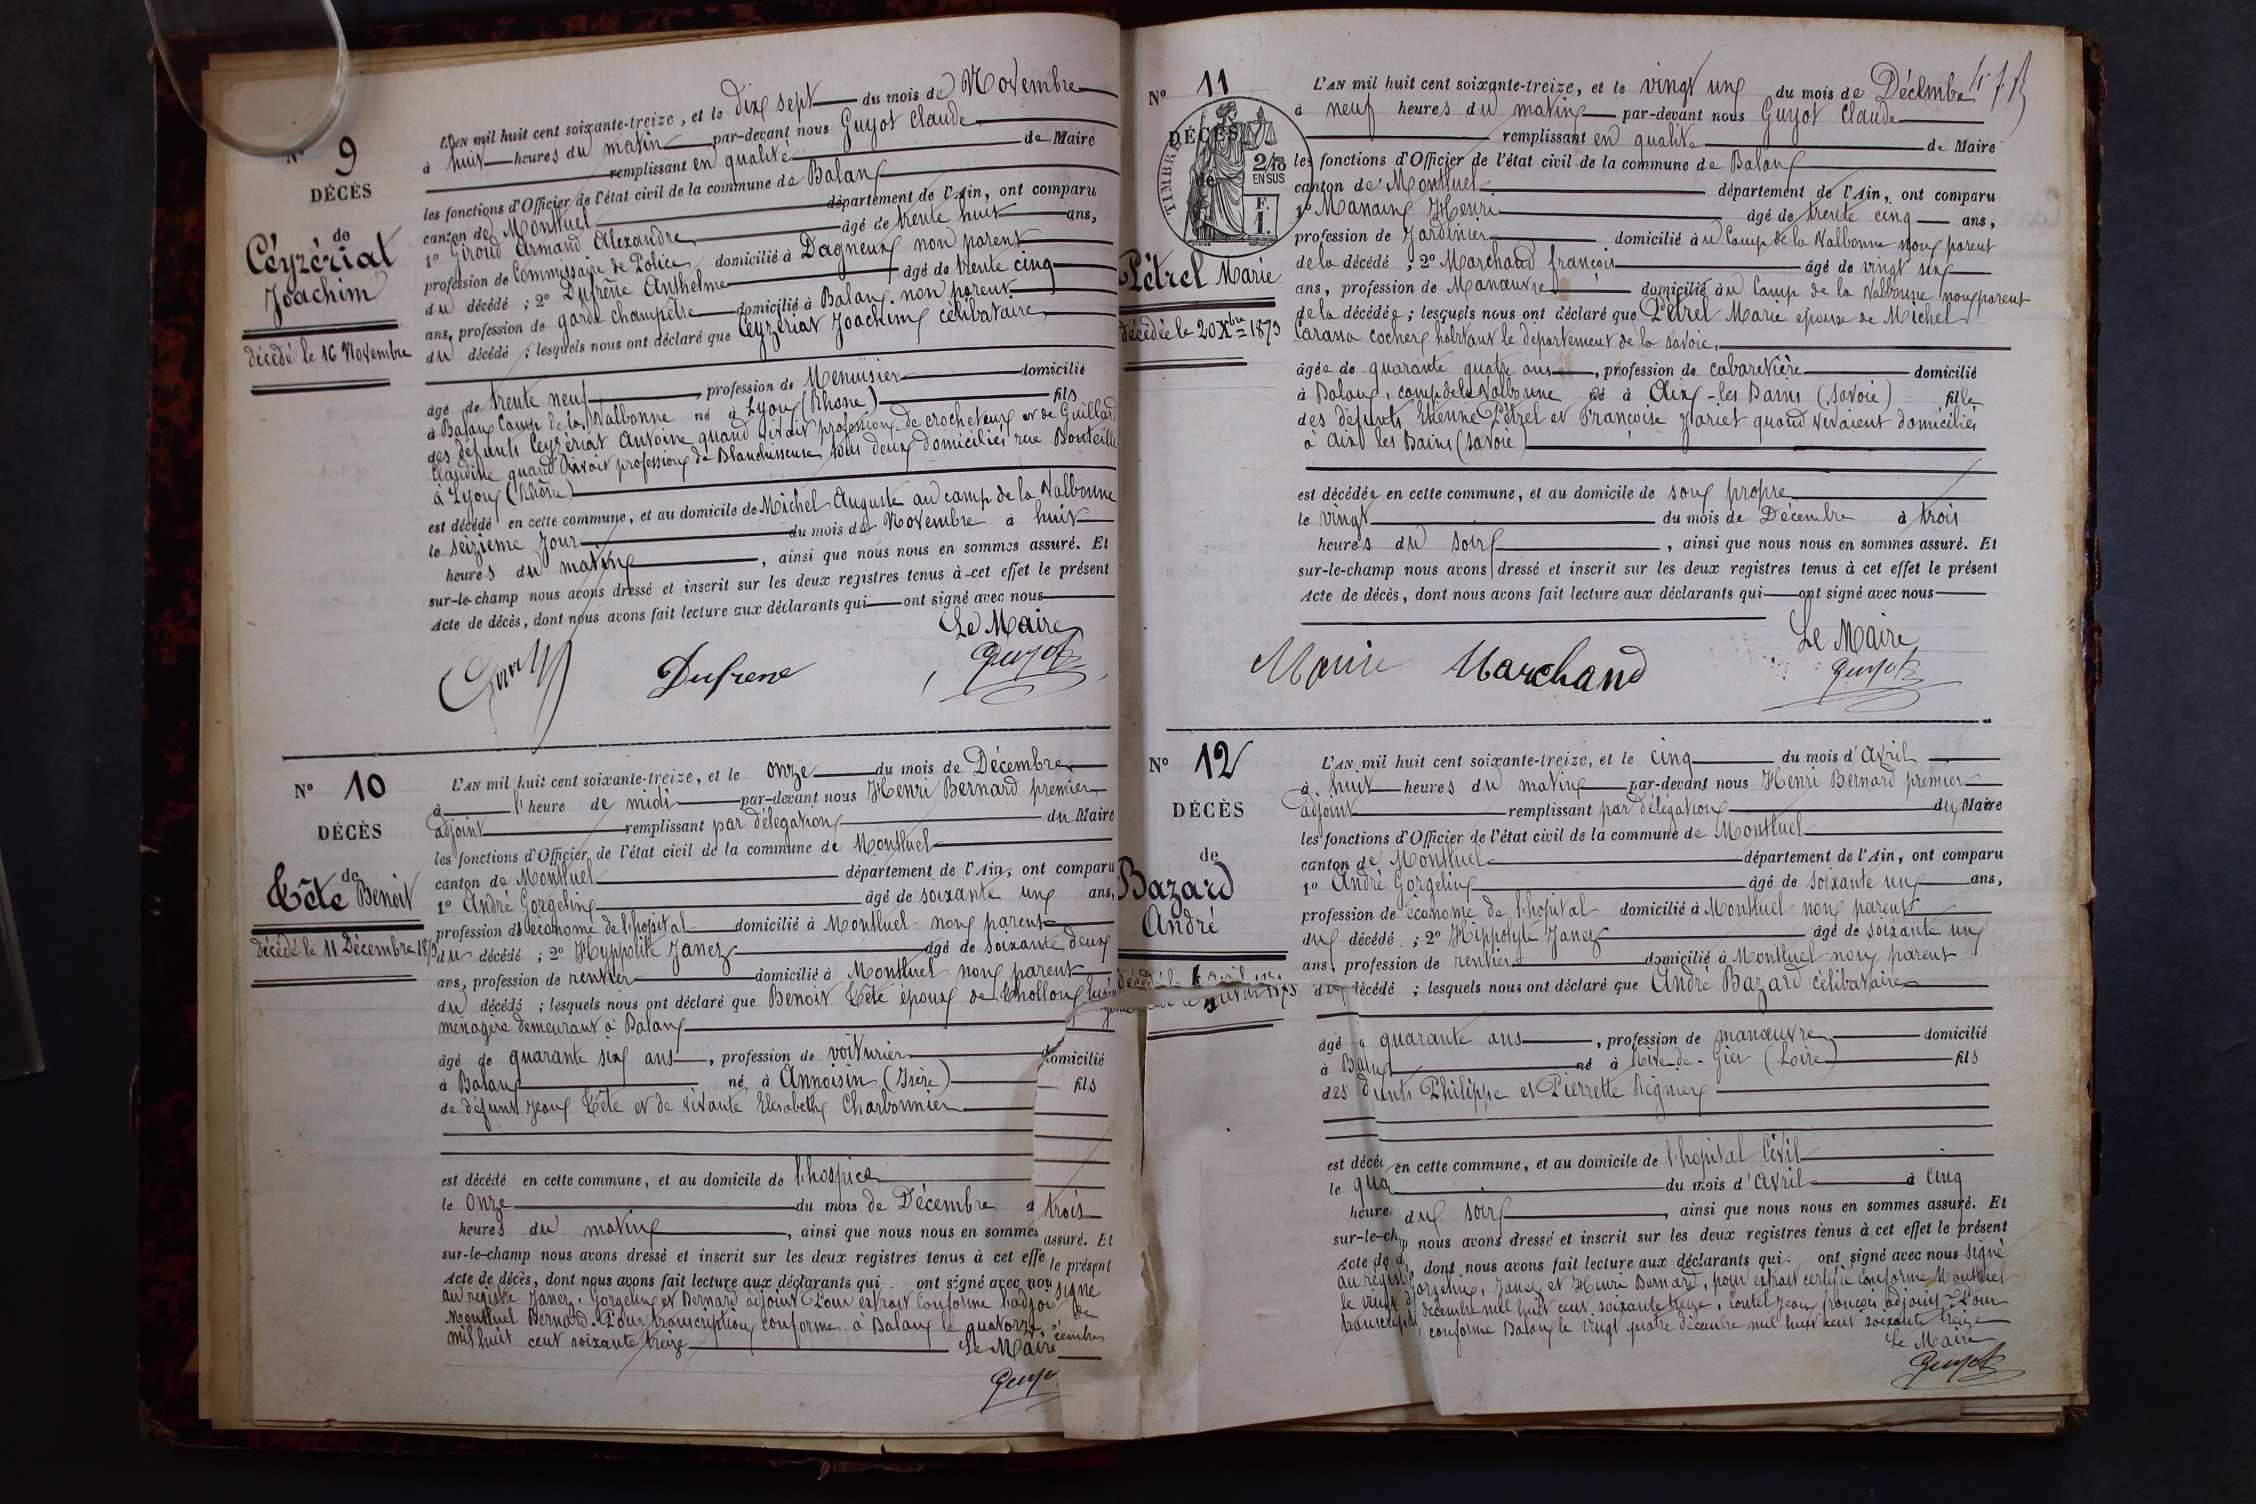 N° 9
DÉCÈS
de
Céyzériat
Joachim
décédé le 16 Novembre
L'AN mil huit cent soixante-treize, et le dix sept du mois de Novembre
à huit heures du matin par-devant nous Guyot Claude
remplissant en qualité de Maire
les fonctions d'Officier de l'état civil de la commune de Balan
canton de Montluel département de l'Ain, ont comparu
1° Giroud Armand Alexandre âgé de trente huit ans,
profession de Commissaire de Police domicilié à Dagneux non parent
du décédé ; 2° Dufrêne Anthelme âgé de trente cinq
ans, profession de garde champêtre domicilié à Balan non parent
du décédé ; lesquels nous ont déclaré que Ceyzériat Joachim célibataire
âgé de trente neuf, profession de Menuisier domicilié
à Balan Camp de la Valbonne né à Lyon (Rhône) fils
des défunts Ceyzériat Antoine quand vivait profession de crocheteur et de Guillard
Claudine quand vivait profession de Blanchisseuse tous deux domiciliés rue Bouteille
à Lyon (Rhône)
est décédé en cette commune, et au domicile de Michel Auguste au camp de la Valbonne
le seizième jour du mois de Novembre à huit
heures du matin, ainsi que nous nous en sommes assuré. Et
sur-le-champ nous avons dressé et inscrit sur les deux registres tenus à cet effet le présent
Acte de décès, dont nous avons fait lecture aux déclarants qui ont signé avec nous
Le Maire
Dufrene
Guyot
N° 10
DÉCÈS
de
Tête Benoit
décédé le 11 Décembre 1873
L'AN mil huit cent soixante-treize, et le onze du mois de Décembre
à l'heure de midi par-devant nous Henri Bernard premier
adjoint remplissant par délégation du Maire
les fonctions d'Officier de l'état civil de la commune de Montluel
canton de Montluel département de l'Ain, ont comparu
1° André Gorgelin âgé de soixante un ans,
profession de économe de l'hopital domicilié à Montluel non parent
du décédé ; 2° Hyppolite Janez âgé de soixante deux
ans, profession de rentier domicilié à Montluel non parent
du décédé ; lesquels nous ont déclaré que Benoit Tête époux de Thollon
ménagère demeurant à Balan
âgé de quarante six ans, profession de voiturier domicilié
à Balan né à Annoisin (Isère) fils
de défunt Jean Tête et de vivante Elisabeth Charbonnier
est décédé en cette commune, et au domicile de l'hospice
le onze du mois de Décembre à trois
heures du matin, ainsi que nous nous en sommes assuré. Et
sur-le-champ nous avons dressé et inscrit sur les deux registres tenus à cet effe le présent
Acte de décès, dont nous avons fait lecture aux déclarants qui ont signé avec nou signé
au registre Janez, Gorgelin et Bernard adjoint Pour extrait conforme l'adjoi de
Montluel Bernard. Pour transcription conforme à Balan le quatorze
mil huit cent soixante treize Le Maire
Guyo
N° 11
DÉCÈS
de
TIMBRE
2/10
EN SUS
F.
1.
Pétrel Marie
décédée le 20 Xbre 1873
L'AN mil huit cent soixante-treize, et le vingt un du mois de Décembre
à neuf heures du matin par-devant nous Guyot Claude
remplissant en qualité de Maire
les fonctions d'Officier de l'état civil de la commune de Balan
canton de Montluel département de l'Ain, ont comparu
1° Manain Henri âgé de trente cinq ans,
profession de Jardinier domicilié à u Camp de la Valbonne non parent
de la décédé ; 2° Marchand françois âgé de vingt six
ans, profession de Manœuvre domicilié à u Camp de la Valbonne non parent
de la décédée ; lesquels nous ont déclaré que Pétrel Marie epouse de Michel
Carassa cocher habitant le departement de la savoie,
âgée de quarante quatre ans, profession de cabaretière domicilié
à Balan, camp de la Valbonne né à Aix-les Bains (Savoie) fille
des défunts Etienne Pétrel et Françoise Mariet quand vivaient domiciliés
à aix les Bains (Savoie)
est décédée en cette commune, et au domicile de son propre
le vingt du mois de Décembre à trois
heures du soir, ainsi que nous nous en sommes assuré. Et
sur-le-champ nous avons dressé et inscrit sur les deux registres tenus à cet effet le présent
Acte de décès, dont nous avons fait lecture aux déclarants qui ont signé avec nous
Le Maire
Marchand
Guyot
N° 12
DÉCÈS
de
Bazard
André
L'AN mil huit cent soixante-treize, et le cinq du mois d'Avril
à huit heures du matin par-devant nous Henri Bernard premier
adjoint remplissant par délégation du Maire
les fonctions d'Officier de l'état civil de la commune de Montluel
canton de Montluel département de l'Ain, ont comparu
1° André Gorgelin âgé de soixante un ans,
profession de économe de l'hopital domicilié à Montluel non parent
du décédé ; 2° Hippolyte Janez âgé de soixante un
ans, profession de rentier domicilié à Montluel non parent
du décédé ; lesquels nous ont déclaré que André Bazard célibataire
âgé quarante ans, profession de manœuvre domicilié
à Balan né à Rive-de-Gier (Loire) fils
des Philippe et Pierrette Régnier
est décé en cette commune, et au domicile de l'hopital Civil
le qua du mois d'Avril à cinq
heure du soir, ainsi que nous nous en sommes assuré. Et
sur-le-ch nous avons dressé et inscrit sur les deux registres tenus à cet effet le présent
Acte de d dont nous avons fait lecture aux déclarants qui ont signé avec nous signé
au registre Gorgelin, Janez et Henri Bernard, pour extrait certifié conforme Montluel
le vingt décembre mil huit cent soixante treize, Coutel Jean françois adjoint Pour
transcripti conforme Balan le vingt quatre décembre mil huit cent soixante treize
Le Maire
Guyot